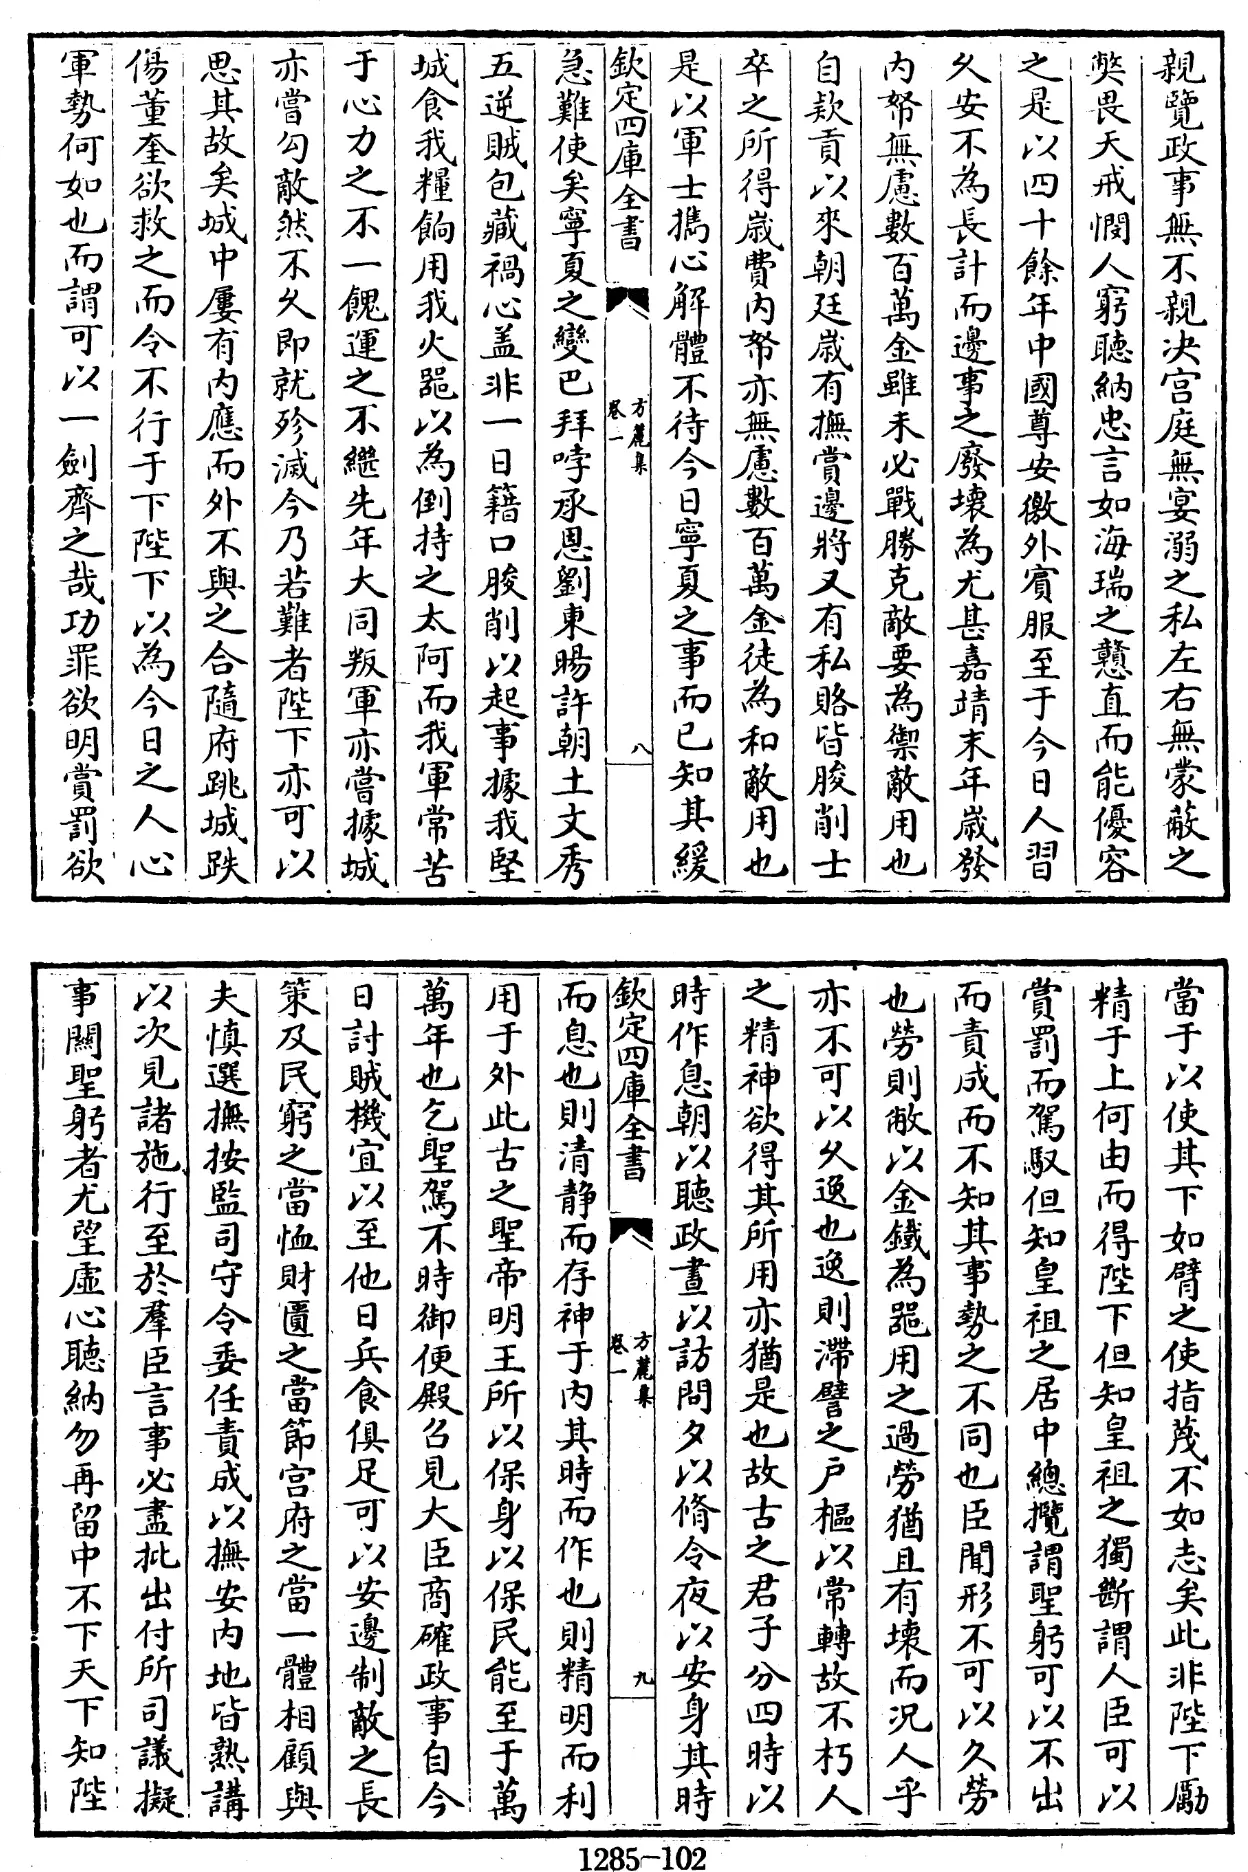 親覽政事無不親决宫庭無宴溺之私左右無蒙蔽之
獘畏天戒憫人窮聽納忠言如海瑞之戇直而能優容
之是以四十餘年中國尊安徼外賓服至于今日人習
久安不為長計而邊事之廢壊為尤甚嘉靖末年歲發
内帑無慮數百萬金雖未必戰勝克敵要為禦敵用也
自欵貢以來朝廷嵗有撫賞邊將又有私賂皆朘削士
卒之所得嵗費内帑亦無慮數百萬金徒為和敵用也
是以軍士攜心解體不待今日寧夏之事而已知其緩
欽定四庫全書
方麓集
卷一
八
急難使矣寧夏之變巴拜哱承恩劉東暘許朝土文秀
五逆賊包藏禍心盖非一日籍口朘削以起事據我堅
城食我糧餉用我火噐以為倒持之太阿而我軍常苦
于心力之不一餽運之不繼先年大同叛軍亦嘗據城
亦嘗勾敵然不久即就殄滅今乃若難者陛下亦可以
思其故矣城中屢有内應而外不與之合隨府跳城跌
傷董奎欲救之而令不行于下陛下以為今日之人心
軍勢何如也而謂可以一劍齊之哉功罪欲明賞罰欲
當于以使其下如臂之使指蔑不如志矣此非陛下勵
精于上何由而得陛下但知皇祖之獨斷謂人臣可以
賞罰而駕馭但知皇祖之居中總攬謂聖躬可以不出
而責成而不知其事勢之不同也臣聞形不可以久勞
也勞則敝以金鐵為噐用之過勞猶且有壊而况人乎
亦不可以久逸也逸則滯譬之户樞以常轉故不朽人
之精神欲得其所用亦猶是也故古之君子分四時以
時作息朝以聽政晝以訪問夕以脩令夜以安身其時
欽定四庫全書
方麓集
卷一
九
而息也則清静而存神于内其時而作也則精明而利
用于外此古之聖帝明王所以保身以保民能至于萬
萬年也乞聖駕不時御便殿召見大臣商確政事自今
日討賊機宜以至他日兵食俱足可以安邊制敵之長
策及民窮之當恤財匱之當節宫府之當一體相顧與
夫慎選撫按監司守令委任責成以撫安内地皆熟講
以次見諸施行至於羣臣言事必盡批出付所司議擬
事關聖躬者尤望虛心聽納勿再留中不下天下知陛
1285-102